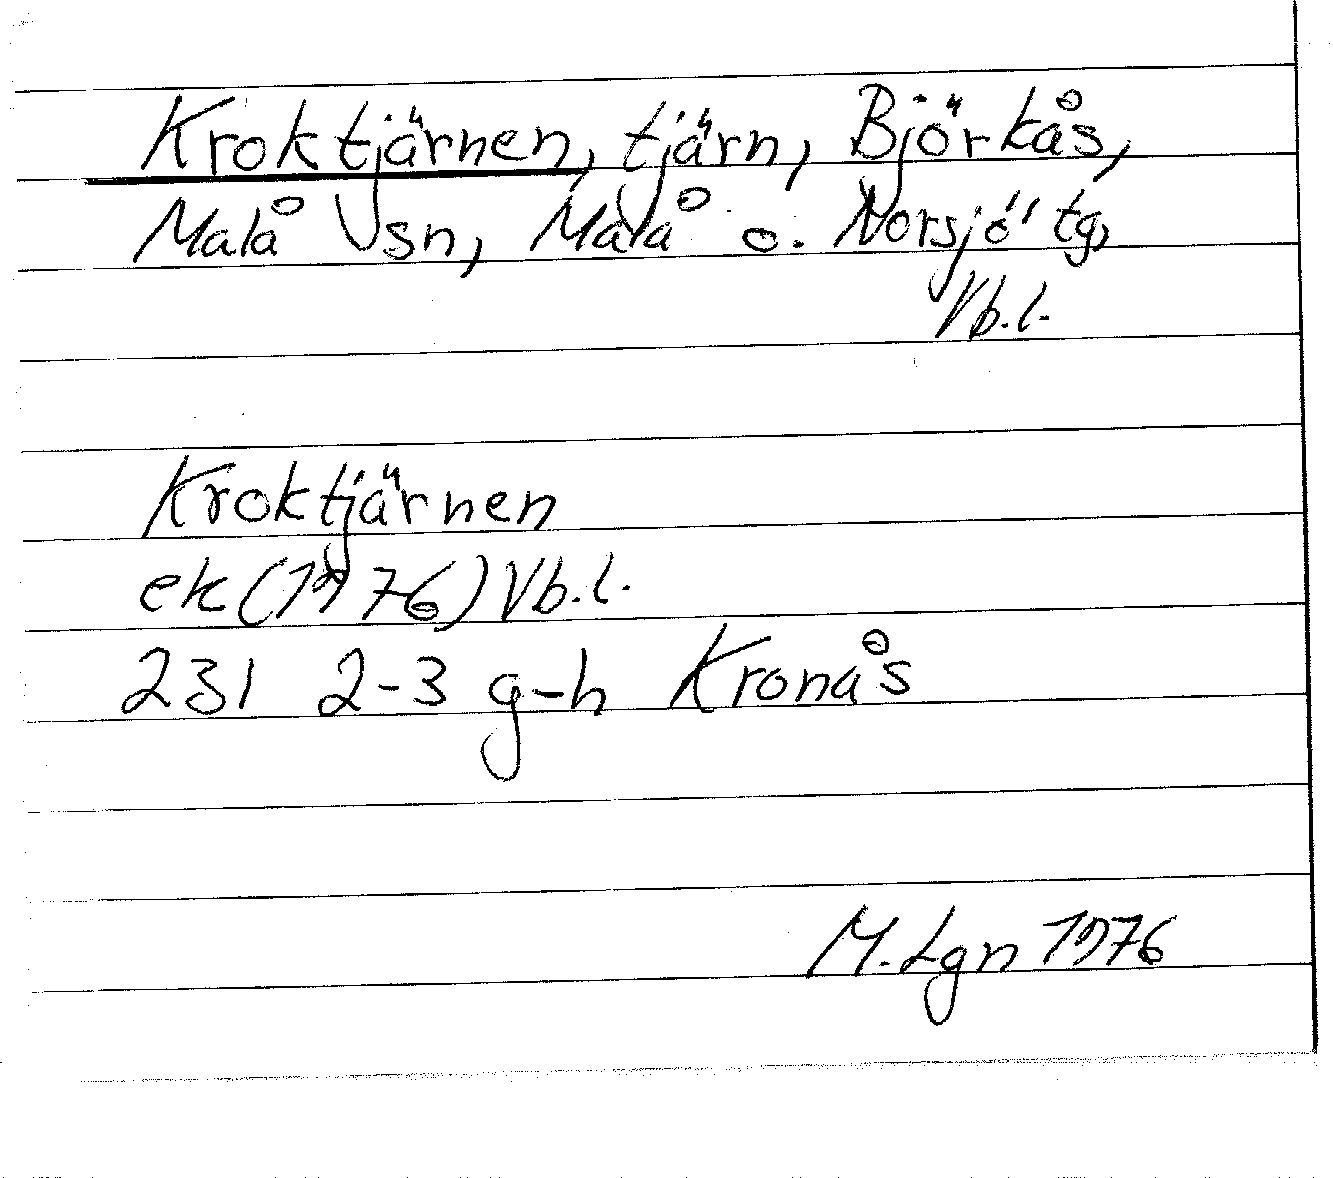 Kroktjärnen, tjärn, Björkås,
Malå sn, Malå o. Norsjö tg,
Vb.l.
Kroktjärnen
ek (1976) Vb.l.
231 2-3 g-h Kronås
M. Lgn 1976